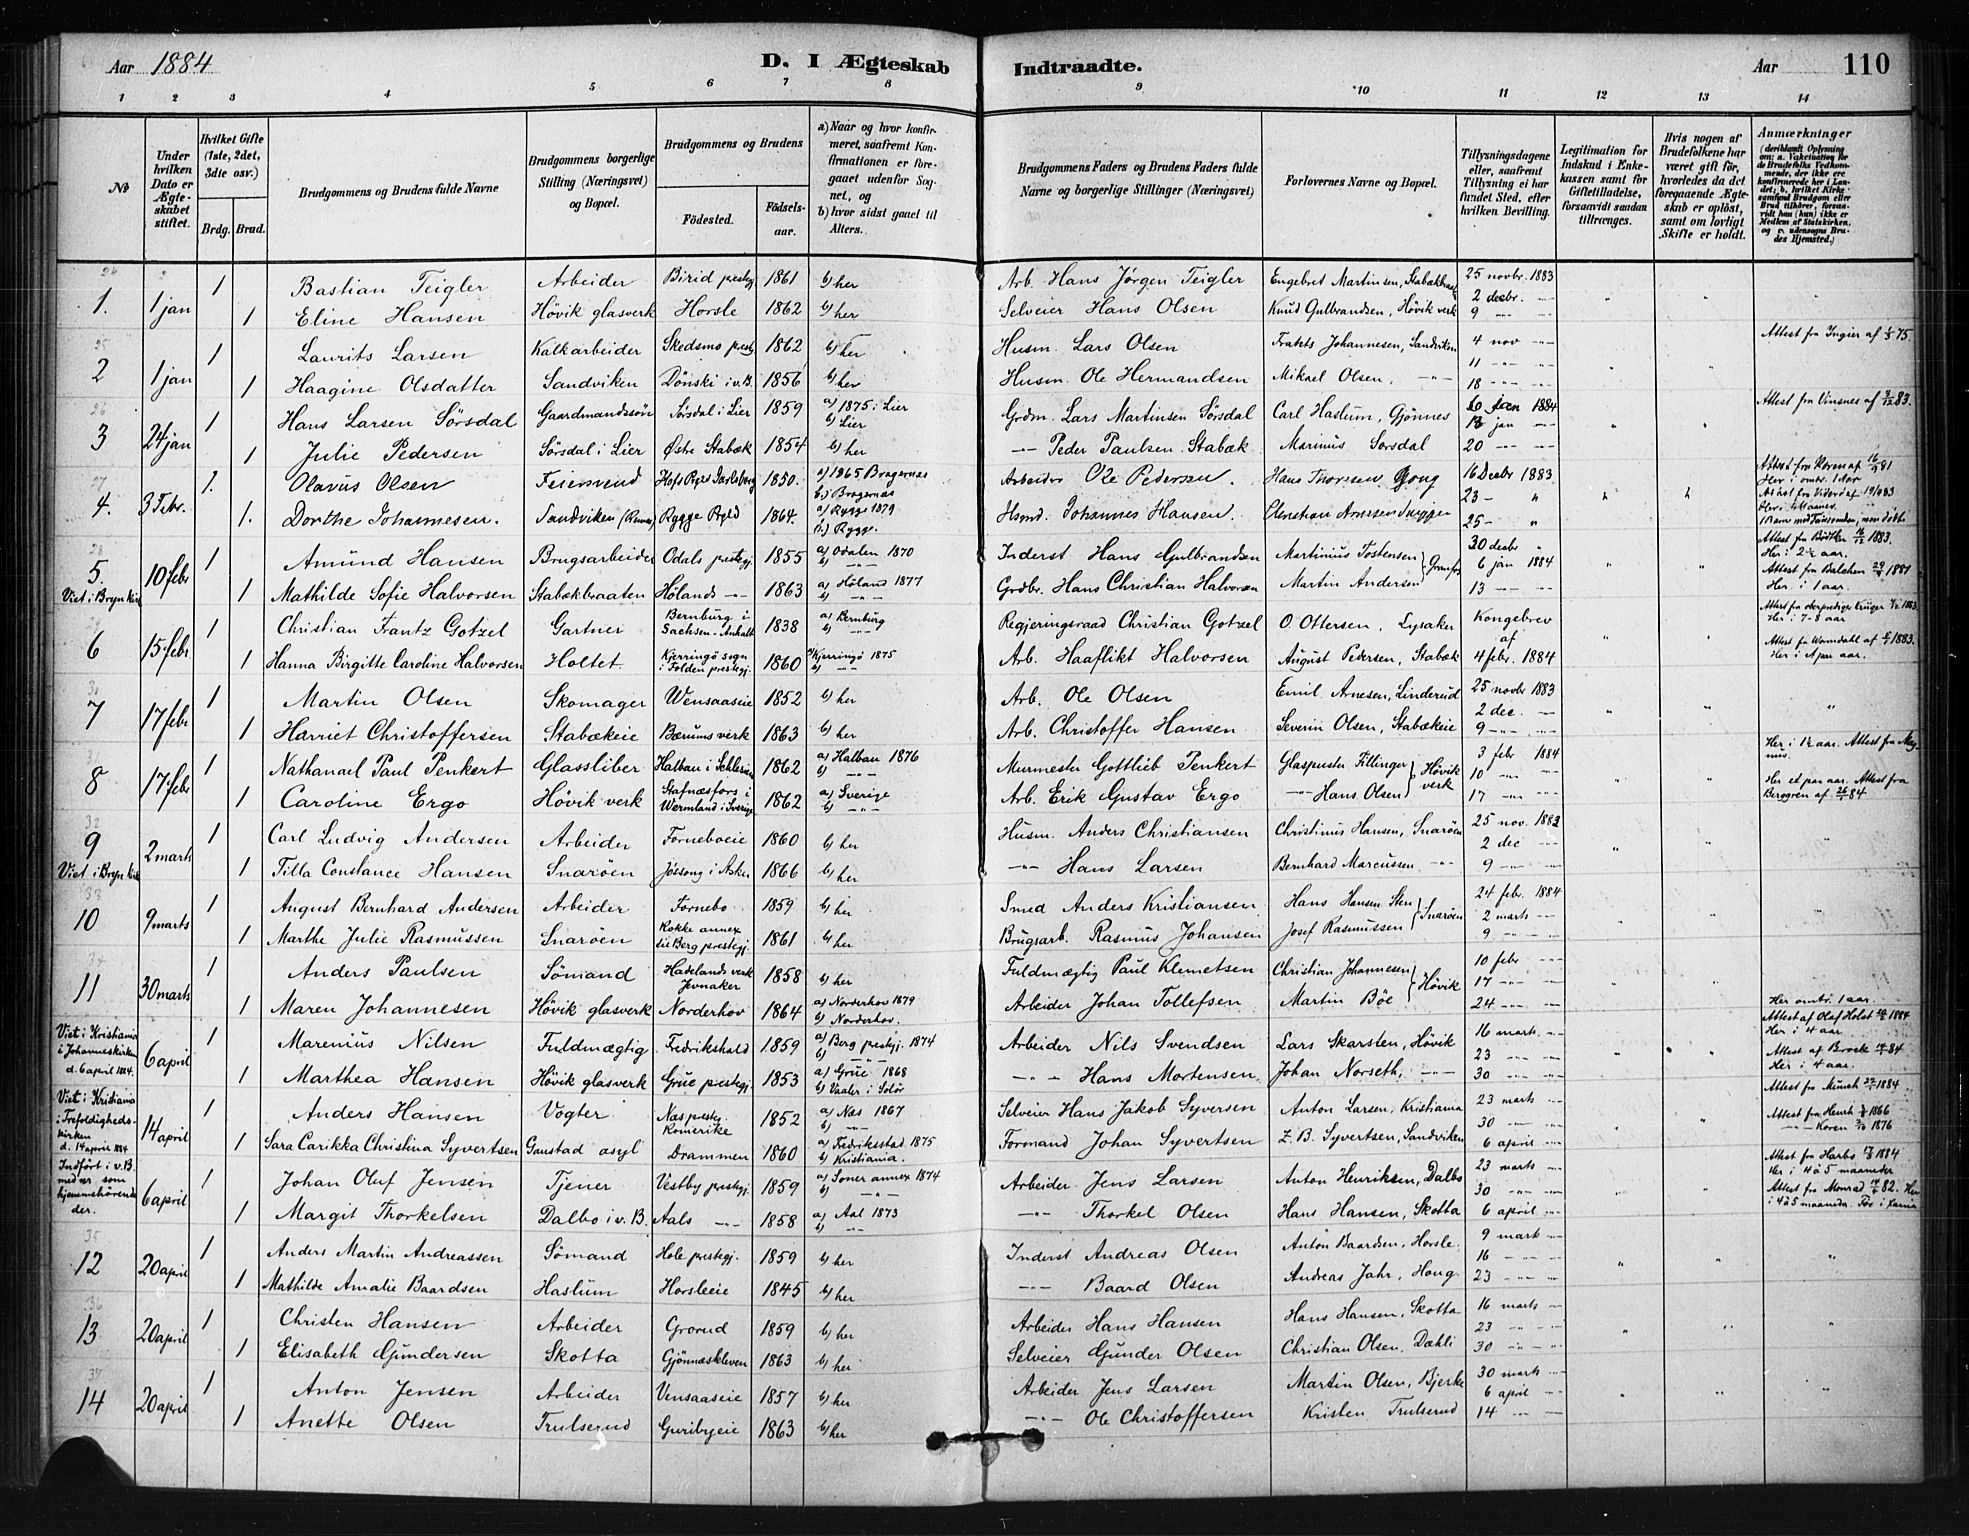 Aar 1884
D. I Ægteskab Indtraadte.
Aar 110
1 2 3 4 5 6 7 8 9 10 11 12 13 14
No
Under hvilken Dato er Ægteskabet stiftet.
Hvilket Gifte (1ste, 2det, 3die osv.)
Brdg. Brud.
Brudgommens og Brudens fulde Navne
Brudgommens borgerlige Stilling (Næringsvei) og Bopæl.
Brudgommens og Brudens
Fødested. Fødsels-aar.
a) Naar og hvor konfirmeret, saafremt Konfirmationen er foregaaet udenfor Sognet, og
b) hvor sidst gaaet til Alters.
Brudgommens Faders og Brudens Faders fulde Navne og borgerlige Stillinger (Næringsvei)
Forlovernes Navne og Bopæl.
Tillysningsdagene eller, saafremt Tillysning ei har fundet Sted, efter hvilken Bevilling.
Legitimation for Indskud i Enkekassen samt for Giftetilladelse, forsaavidt saadan tiltrænges.
Hvis nogen af Brudefolkene har været gift før, hvorledes da det foregaaende Ægteskab er opløst, samt om lovligt Skifte er holdt.
Anmærkninger (deriblandt Oplysning om: a. Vakcination for de Brudefolks Vedkommende, der ikke ere konfirmerede her i Landet; b. hvilket Kirkesamfund Brudgom eller Brud tilhører, forsaavidt han (hun) ikke er Medlem af Statskirken, og c. udensogns Brudes Hjemsted.)
1. 1 jan 1 Bastian Teigler Arbeider Birid prestegj 1861 b) her Arb. Hans Jørgen Teigler Engebret Martinsen, 25 novbr. 1883
1 Eline Hansen Høvik glasverk Horsle 1862 b) her Selveier Hans Olsen Knud Gulbrandsen, Høvik verk 2 decbr. 9
2 1 jan 1 Laurits Larsen Kalkarbeider Skedsmo prestg 1862 b) her Husm. Lars Olsen Johannesen, Sandviken 4 nov Attest fra Ingier af 75.
1 Haagine Olsdatter Sandviken Dønski i v. B. 1856 b) her Husm. Ole Hermandsen Mikael Olsen, 11 18
3 24 jan 1 Hans Larsen Sørsdal Gaardmandssøn Sørsdal i Lier 1859 a) 1875 i Lier b) Lier Grdm. Lars Martinsen Sørsdal Carl Haslum, Gjønnes 6 jan 1884 Attest fra Vinsnes af 83.
1 Julie Pedersen Sørsdal i Lier Østre Stabæk 1854 b) her Peder Paulsen Stabæk Marinus Sørsdal 13 jan 20
4. 3 Febr. 1. Olavus Olsen Feiersvend 1850. a) 1865 Bragernæs b) Bragernæs Arbeider Ole Pedersen. Hans Thoresen 16 Decbr 1883 Her i omtr. 1 Aar
1. Dorthe Johannesen. Sandviken Rygge Pgld 1864. a) Rygge 1879 b) Rygge. Hsmd. Johannes Hansen. Christian 23 25
5. 10 febr 1 Amund Hansen Brugsarbeider Odals prestegj. 1855 a) Odalen 1870 Inderst Hans Gulbrandsen Martinius Tostensen 30 decbr 1883. Her i 2½ aar.
Viet i Bryn kirke 1 Mathilde Sofie Halvorsen Stabækbraaten Hølands 1863 a) Høland 1877 Grdbr. Hans Christian Halvorsen Martin Andersen Granfos 6 jan 1884 13 Her i 1 aar.
6 15 febr 1 Christian Frantz Gotzel Gartner Bernburg i Sachsen-Anhalt 1838 a) Bernburg Regjeringsraad Christian Gotzel O. Ottersen, Lysaker Kongebrev af Her i 7-8 aar
1 Hanna Birgitte Caroline Halvorsen Holtet Kjerringø sogn i Folden prestegj. 1860 a) Kjerringø 1875 Arb. Haaflikt Halvorsen August Pedersen, Stabæk 4 febr. 1884 1883. Her i et par aar.
7 17 febr 1 Martin Olsen Skomager Wensaaseie 1852 b) her Arb. Ole Olsen Emil Arnesen, Linderud 25 novbr 1883
1 Harriet Christoffersen Stabækeie Bærums verk 1863 b) her Arb. Christoffer Hansen Severin Olsen, Stabækeie 2 dec. 9
8 17 febr 1 Nathanael Paul Penkert Glassliber Halbau i Schlesien 1862 a) Halbau 1876 Murmester Gottlieb Penkert Glaspuster Fillinger 3 febr 1884 Her i 1½ aar. Attest fra
1 Caroline Ergo Høvik verk Stafnæsfors i Wermland i Sverige 1862 a) Sverige Arb. Erik Gustav Ergo Hans Olsen Høvik verk 10 17 Her et par aar. Attest fra Berggren af 84.
9 2 marts 1 Carl Ludvig Andersen Arbeider Forneboeie 1860 b) her Husm. Anders Christiansen Christinus Hansen, Snarøen 25 nov. 1883
Viet i Bryn kirke 1 Tilla Constance Hansen Snarøen i Asker 1866 b) her Hans Larsen Bernhard Marcussen 2 dec 9
10 9 marts 1 August Bernhard Andersen Arbeider Fornebo 1859 b) her Smed Anders Kristiansen Hans Hansen Sten 24 febr. 1884
1 Marthe Julie Rasmussen Snarøen Rokke annex til Berg prestegj. 1861 b) her Brugsarb. Rasmus Johansen Josef Rasmussen Snarøen 2 marts 9
11 30 marts 1 Anders Paulsen Sømand Hadelands verk Jevnaker 1858 b) her Fuldmægtig Paul Klemetsen Christian Johannesen 10 febr
1 Maren Johannesen Høvik glasverk Norderhov 1864 a) Norderhov 1879 b) Norderhov. Arbeider Johan Tollefsen Martin Bøe Høvik 17 24 Her omtr. 1 aar.
Viet i Kristiania i Johanneskirken d. 6 april 1884. 6 april 1 Marenius Nilsen Fuldmægtig Fredrikshald 1859 a) Berg prestgj. 1874 Arbeider Nils Svendsen Lars Skarsten, Høvik 16 marts Attest af Olaf Holst 1884 Her i 4 aar
1 Marthea Hansen Høvik glasverk Grue prestegj. 1853 a) Grue 1868 b) Vaaler i Solør Hans Mortensen Johan Norseth, 23 30 Attest af Brock 84 Her i 4 aar.
Viet i Kristiania i Trefoldighedskirken d. 14 april 1884 14 april 1 Anders Hansen Vogter Næs prestegj. Romerike 1852 a) Næs 1867 Selveier Hans Jakob Syversen Anton Larsen, Kristiania 23 marts Attest fra Munch 1884.
1 Sara Carikka Christina Syvertsen Gaustad asyl Drammen 1860 a) Fredriksstad 1875 b) Kristiania. Formand Johan Syvertsen Z. B. Syvertsen, Sandviken 30 6 april Attest fra 1866 Koren 1876
Indført i v. B. med nr. som hjemmehørende der. 6 april 1 Johan Oluf Jensen Tjener Vestby prestegj. 1859 a) Soner annex 1874 Arbeider Jens Larsen Anton Henriksen, Dalbo 23 marts Attest fra Harbo 1884 Her i 4 à 5 maaneder
1 Margit Thorkelsen Dalbo i v. B. Aals 1858 a) Aal 1873 Thorkel Olsen Hans Hansen, Skotta 30 6 april Attest fra Monrad 82. Her i 4 à 5 maaneder. Før i Xania
12 20 april 1 Anders Martin Andreassen Sømand Hole prestegj. 1859 b) her Inderst Andreas Olsen Anton Baardsen, Horsle. 9 marts
1 Mathilde Amalie Baardsen Haslum Horsleeie 1845 b) her Baard Olsen Andreas Jahr, Haug 16 23
13 20 april 1 Christen Hansen Arbeider Grorud 1859 b) her Arbeider Hans Hansen Hans Hansen, Skotta 16 marts
1 Elisabeth Gundersen Skotta Gjønnæskleven 1863 b) her Selveier Gunder Olsen Christian Olsen, Dæhli 23 30
14 20 april 1 Anton Jensen Arbeider Vensaaseie 1857 b) her Arbeider Jens Larsen Martin Olsen, Bjerke 30 marts
1 Anette Olsen Trulserud Guribyeie 1863 b) her Ole Christoffersen Kristen Trulserud 6 april 14